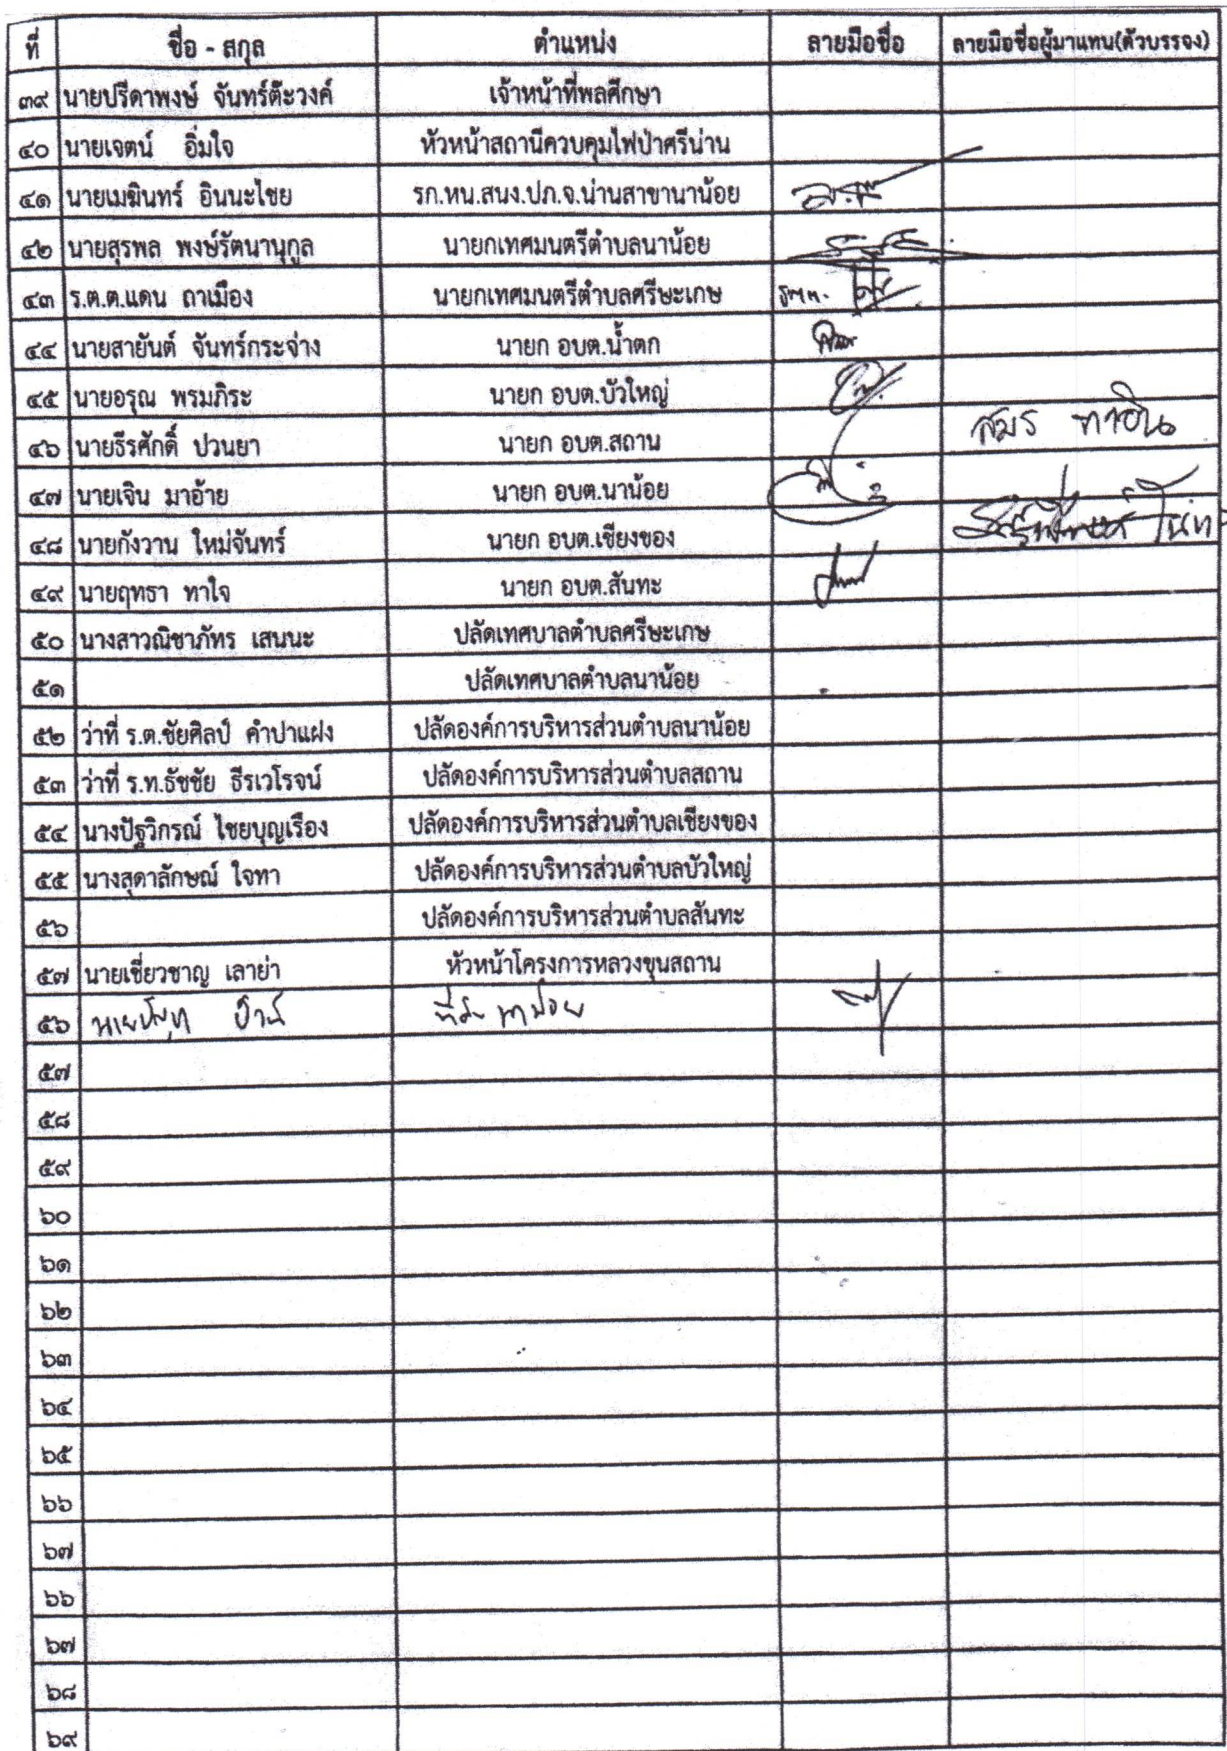 ที่ ชื่อ - สกุล ตำแหน่ง ลายมือชื่อ ลายมือชื่อผู้มาแทน(ตัวบรรจง)
๓๙ นายปรีดาพงษ์ จันทร์ต๊ะวงค์ เจ้าหน้าที่พลศึกษา
๔๐ นายเจตน์ อิ่มใจ หัวหน้าสถานีควบคุมไฟป่าศรีน่าน
๔๑ นายเมฆินทร์ อินนะไชย รก.หน.สนง.ปภ.จ.น่านสาขานาน้อย
๔๒ นายสุรพล พงษ์รัตนานุกูล นายกเทศมนตรีตำบลนาน้อย
๔๓ ร.ต.ต.แดน ถาเมือง นายกเทศมนตรีตำบลศรีษะเกษ
๔๔ นายสายันต์ จันทร์กระจ่าง นายก อบต.น้ำตก
๔๕ นายอรุณ พรมภิระ นายก อบต.บัวใหญ่
๔๖ นายธีรศักดิ์ ปวนยา นายก อบต.สถาน สมร ทาอิน
๔๗ นายเจิน มาอ้าย นายก อบต.นาน้อย
๔๘ นายกังวาน ใหม่จันทร์ นายก อบต.เชียงของ
๔๙ นายฤทธา ทาใจ นายก อบต.สันทะ
๕๐ นางสาวณิชาภัทร เสนนะ ปลัดเทศบาลตำบลศรีษะเกษ
๕๑ ปลัดเทศบาลตำบลนาน้อย
๕๒ ว่าที่ ร.ต.ชัยศิลป์ คำปาแฝง ปลัดองค์การบริหารส่วนตำบลนาน้อย
๕๓ ว่าที่ ร.ท.ธัชชัย ธีรเวโรจน์ ปลัดองค์การบริหารส่วนตำบลสถาน
๕๔ นางปัฐวิกรณ์ ไชยบุญเรือง ปลัดองค์การบริหารส่วนตำบลเชียงของ
๕๕ นางสุดาลักษณ์ ใจทา ปลัดองค์การบริหารส่วนตำบลบัวใหญ่
๕๖ ปลัดองค์การบริหารส่วนตำบลสันทะ
๕๗ นายเชี่ยวชาญ เลาย่า หัวหน้าโครงการหลวงขุนสถาน
๕๖
๕๗
๕๘
๕๙
๖๐
๖๑
๖๒
๖๓
๖๔
๖๕
๖๖
๖๗
๖๖
๖๗
๖๘
๖๙